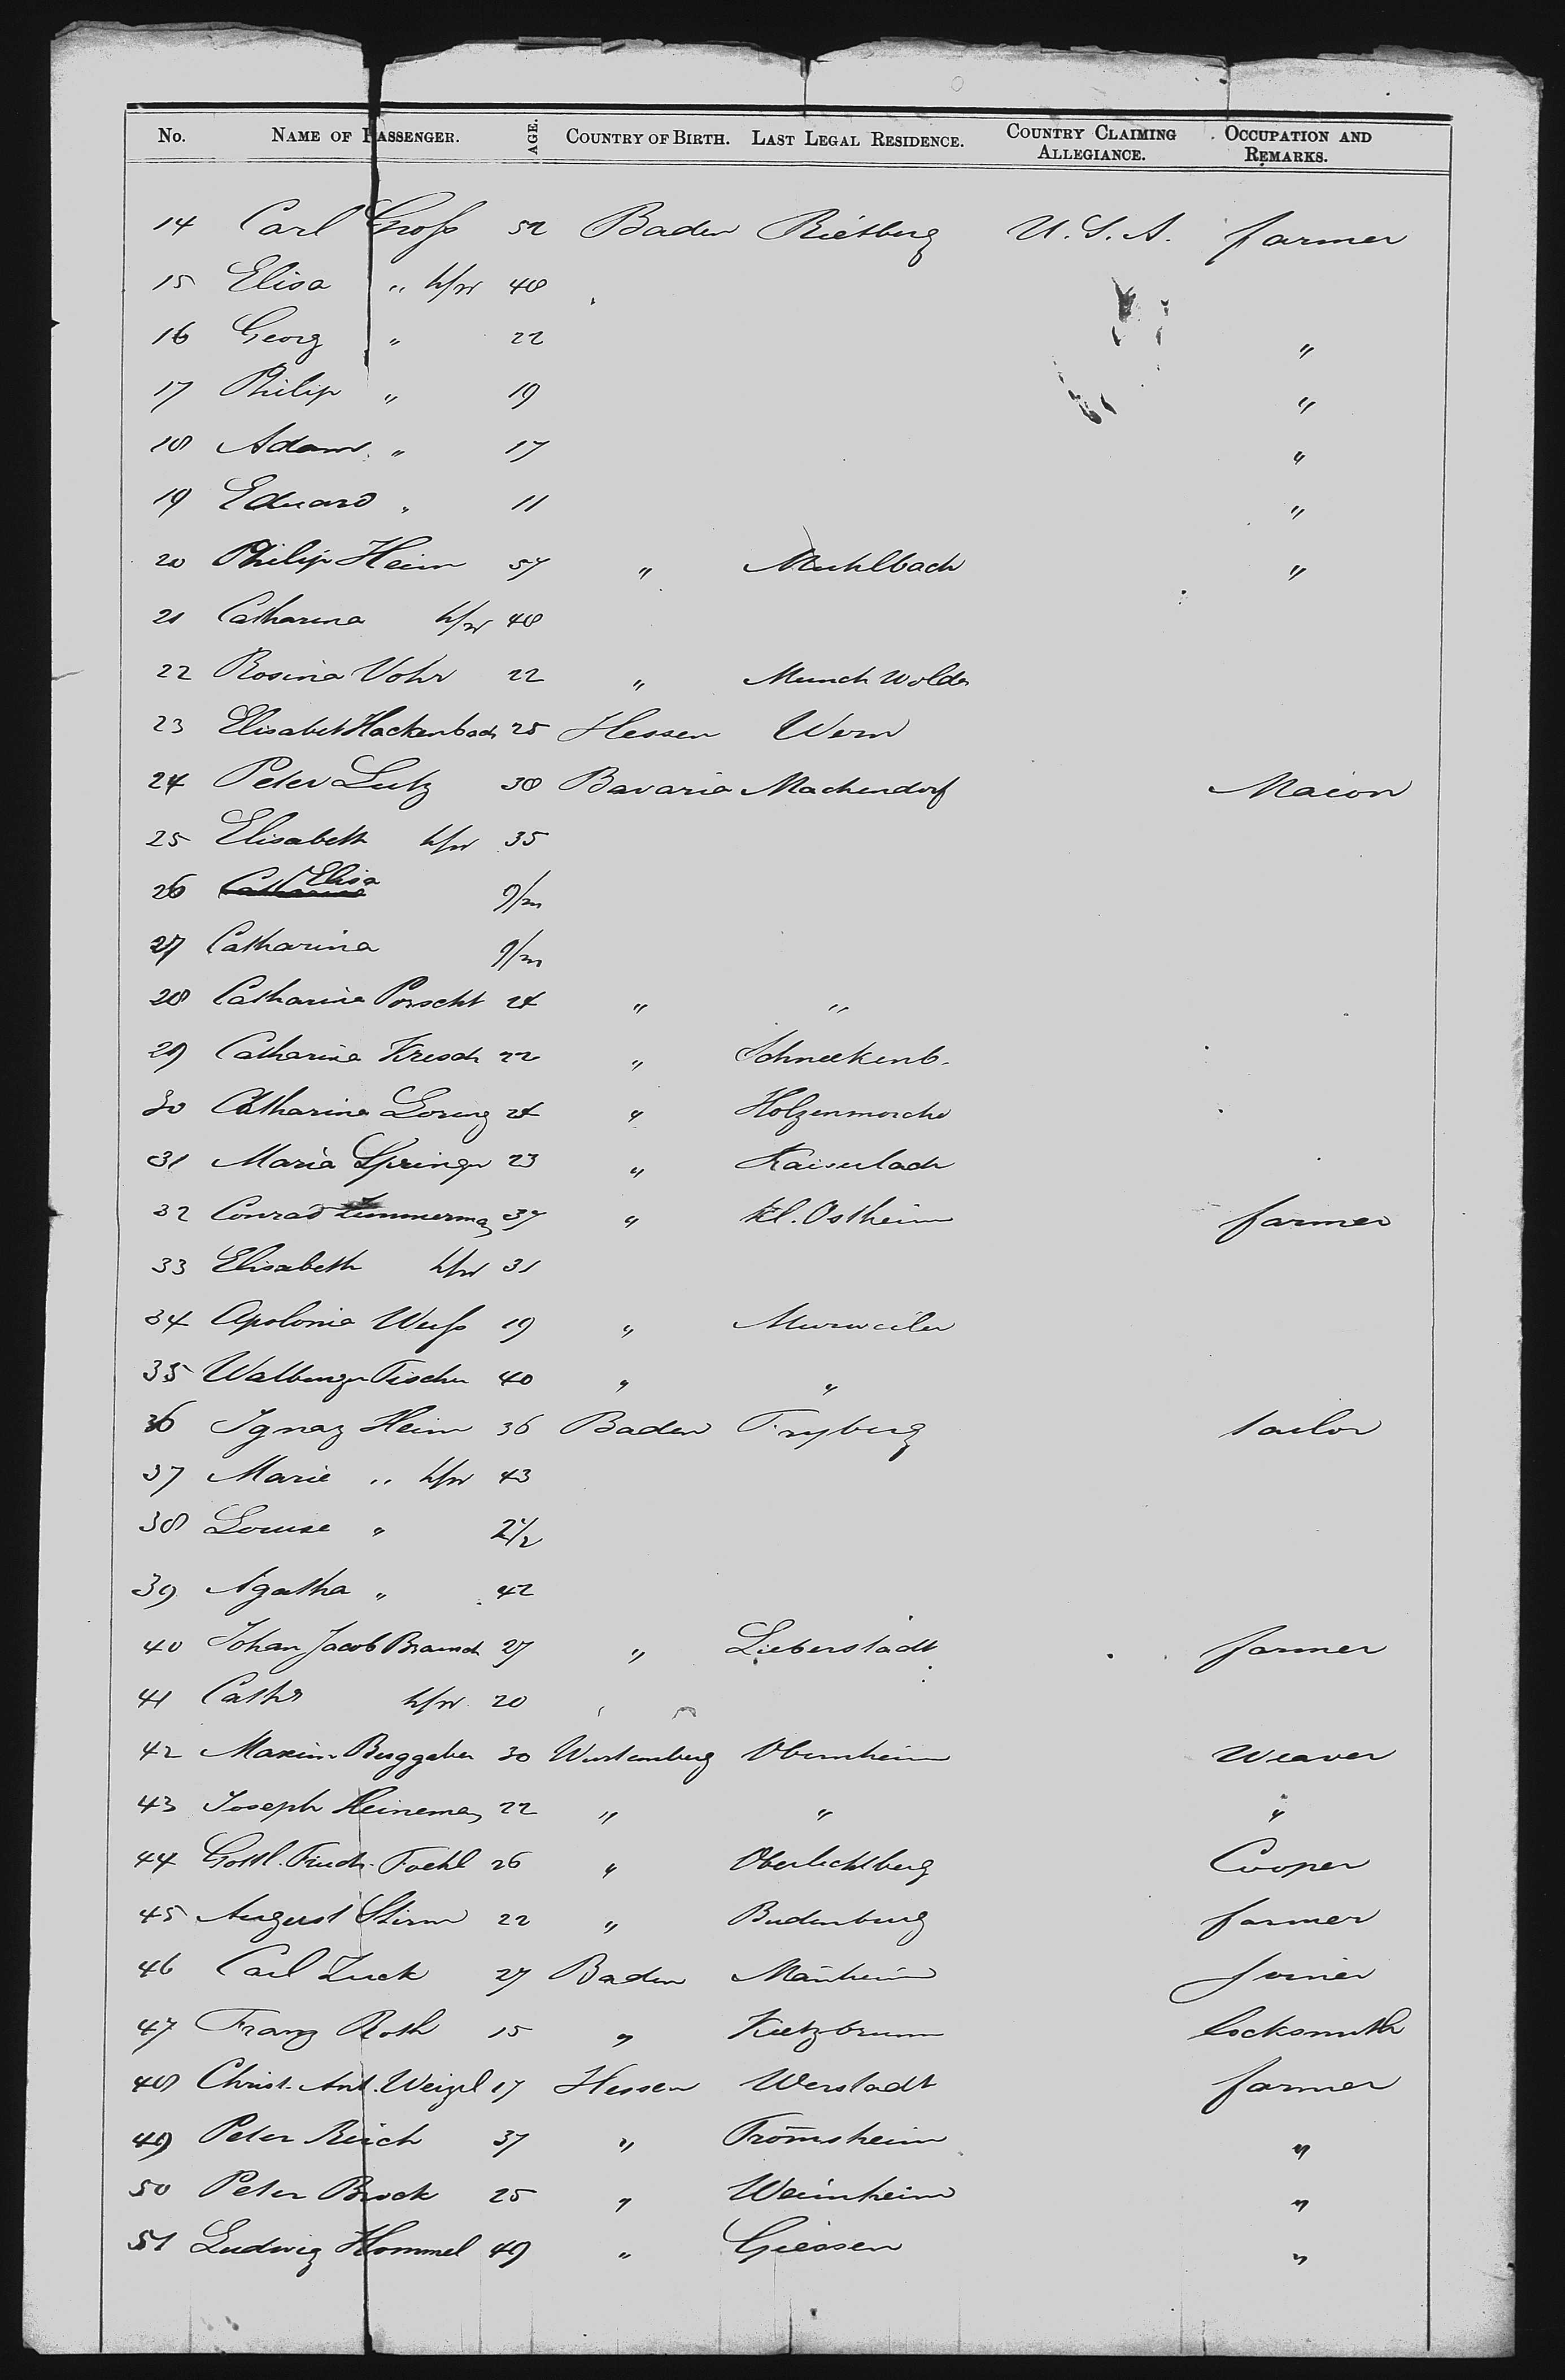 No. NAME OF PASSENGER. AGE. COUNTRY OF BIRTH. LAST LEGAL RESIDENCE. COUNTRY CLAIMING ALLEGIANCE. OCCUPATION AND REMARKS.
14 Carl Groß 52 Baden Rietberg U.S.A. farmer
15 Elisa " h/w 48
16 Georg " 22 "
17 Philip " 19 "
18 Adam " 17 "
19 Eduard " 11 "
20 Philip Heim 57 " Muhlbach "
21 Catharina h/w 48
22 Rosina Vohr 22 " Munch Wolde
23 Elisabet Hackenbach 25 Hessen Wern
24 Peter Lutz 38 Bavaria Machendorf Macon
25 Elisabeth h/w 35
26 Catharina Elisa 9/m
27 Catharina 9/m
28 Catharina Porscht 24 " "
29 Catharina Kresch 22 " Schneckenb.
30 Catharina Lorenz 24 " Holzenmorche
31 Maria Springer 23 " Kaiserlach
32 Conrad Zimmerman 37 " Kl. Ostheim farmer
33 Elisabeth h/w 31
34 Apolonia Weiß 19 " Murweiler
35 Walburga Fischer 40 " "
36 Ignaz Heim 36 Baden Fryberg tailor
37 Marie " h/w 43
38 Louise " 2 1/2
39 Agatha " 42
40 Johan Jacob Brausch 27 " Lieberstadt farmer
41 Cathr h/w 20
42 Maxim. Burggraber 30 Wurtemberg Obernheim Weaver
43 Joseph Heineman 22 " " "
44 Gottl. Friedr. Foehl 26 " Oberlichtberg Cooper
45 August Stirm 22 " Budenburg farmer
46 Carl Zuck 27 Baden Manheim Joiner
47 Franz Roth 15 " Kutzbrunn locksmith
48 Christ. Ant. Weizel 17 Hessen Werstadt farmer
49 Peter Reich 37 " Fromsheim "
50 Peter Brock 25 " Weinheim "
51 Ludwig Hommel 49 " Giessen "